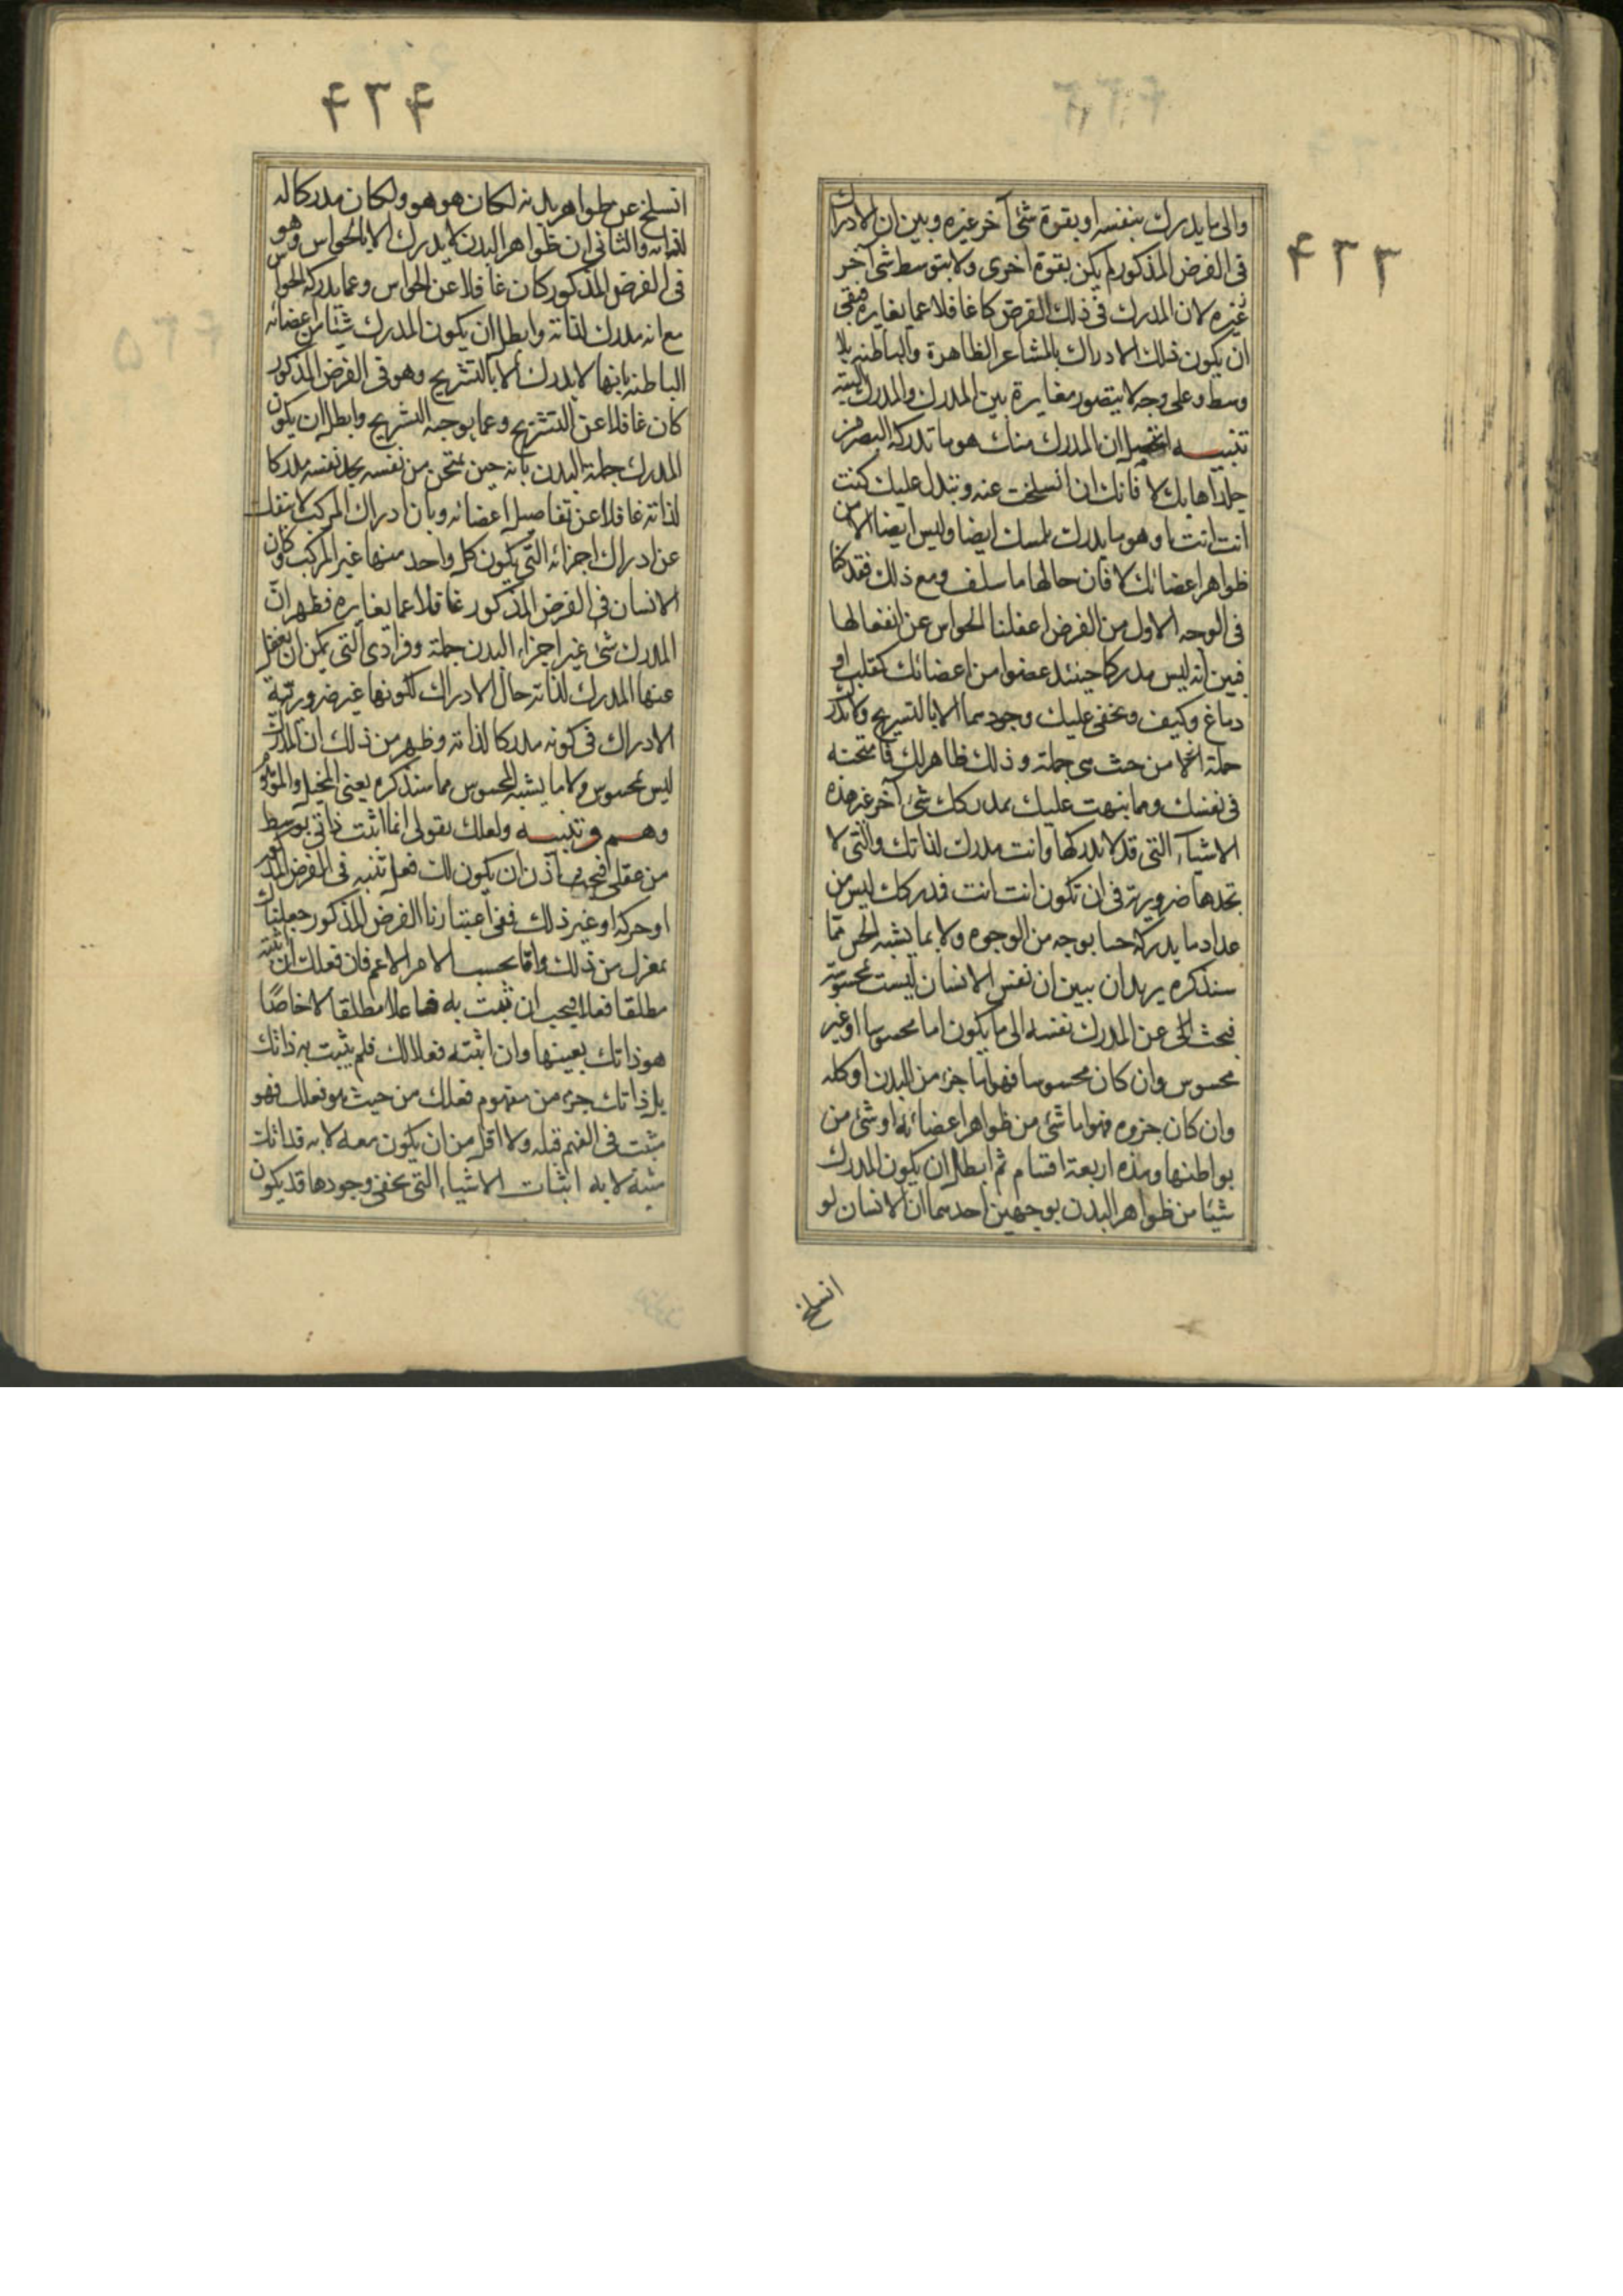 ۴۳۳
والى ما يدرك بنفسه او بقوة شئ آخر غيره وبين ان الادراك
فى الفرض المذكور لم يكن بقوة اخرى ولا بتوسط شئ آخر
غيره لان المدرك فى ذلك الفرض كا غافلا عما يغايره فبقى
ان يكون ذلك الادراك بالمشاعر الظاهرة والباطنه بلا
وسط وعلى وجه لا يتصور مغايرة بين المدرك والمدرك البته
تنبيه اتحصل ان المدرك منك هو ما تدركه البصر من
جلد اهابك لا فانك ان انسلخت عنه وتبدل عليك كنت
انت انت او هو ما يدرك بلمسك ايضا وليس ايضا الا من
ظواهر اعضائك لا فان حالها ما سلف ومع ذلك فقد كنا
فى الوجه الاول من الفرض اغفلنا الحواس عن افعالها
فبين انه ليس مدركا حينئذ عضوا من اعضائك كقلب او
دماغ وكيف ويخفى عليك وجودهما الا بالتشريح ولا مدرك
جملة من حيث هى جملة وذلك ظاهر لك فامتحنه
فى نفسك ومما نبهت عليك بمدركك شئ آخر غير هذه
الاشياء التى قد لا تدركها وانت مدرك لذاتك والتى لا
تجدها ضرورية فى ان تكون انت انت فمدركك ليس من
عداد ما يدركه حسا بوجه من الوجوه ولا بما يشبه الحس مما
سنذكره يريد ان يبين ان نفس الانسان ليست بمحسوسة
فبحث الى عن المدرك نفسه الى ما يكون اما محسوسا او غير
محسوس وان كان محسوسا فهو اما جزء من البدن او كله
وان كان جزوه فهو اما شئ من ظواهر اعضائه او شئ من
بواطنها وهذه اربعة اقسام ثم ابطل ان يكون المدرك
شيئا من ظواهر البدن بوجهين احدهما ان الانسان لو
انسلخ
۴۳۴
انسلخ عن ظواهر بدنه لكان هو هو ولكان مدركا له
لذاته والثانى ان ظواهر البدن لا يدرك الا بالحواس وهو
فى الفرض المذكور كان غافلا عن الحواس وعما يدركه الحواس
مع انه مدرك لذاته وابطل ان يكون المدرك شيئا من اعضائه
الباطنه بانها لا يدرك الا بالتشريح وهو فى الفرض المذكور
كان غافلا عن التشريح وعما يوجبه التشريح وابطل ان يكون
المدرك جملة البدن بانه حين يمتحن من نفسه يجد نفسه مدركا
لذاته غافلا عن تفاصيل اعضائه وبان ادراك المركب لا تنفك
عن ادراك اجزائه التى يكون كل واحد منها غير المركب وكان
الانسان فى الفرض المذكور غافلا عما يغايره فظهر ان
المدرك شئ غير اجزاء البدن جملة وفرادى التى يمكن ان يغفل
عنها المدرك لذاته حال الادراك لكونها غير ضرورية
الادراك فى كونه مدركا لذاته وظهر من ذلك ان المدرك
ليس بمحسوس ولا ما يشبه المحسوس مما سنذكره يعنى المخيل والموهوم
وهم وتنبيه ولعلك يقول انما اثبت ذاتى بوسط
من فعلى فيجب اذن ان يكون لك فعل تثبته فى الفرض المذكور
او حركة او غير ذلك ففى اعتبارنا الفرض المذكور جعلناك
بمعزل من ذلك واما بحسب الامر الاعم فان فعلك ان اثبته
مطلقا فعلا فيجب ان تثبت به فاعلا مطلقا لا خاصا
هو ذاتك بعينها وان اثبته فعلا لك فلم يثبت به ذاتك
بل ذاتك جزء من مفهوم فعلك من حيث هو فعلك فهو
مثبت فى الفهم قبله ولا اقل من ان يكون معه لا به فذاتك
مثبتة لا به اثبات الاشياء التى يخفى وجودها قد يكون